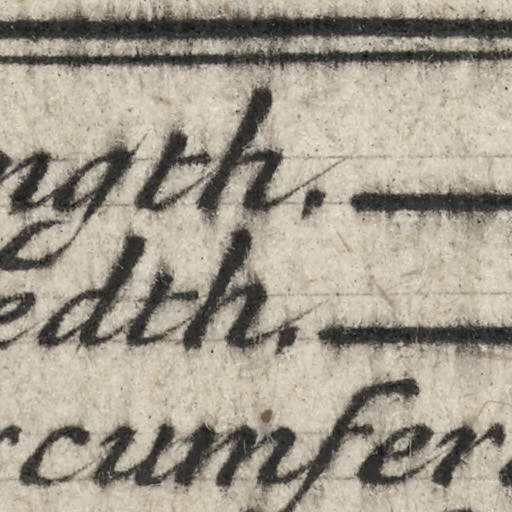 ngth.
edth.
rcumfer